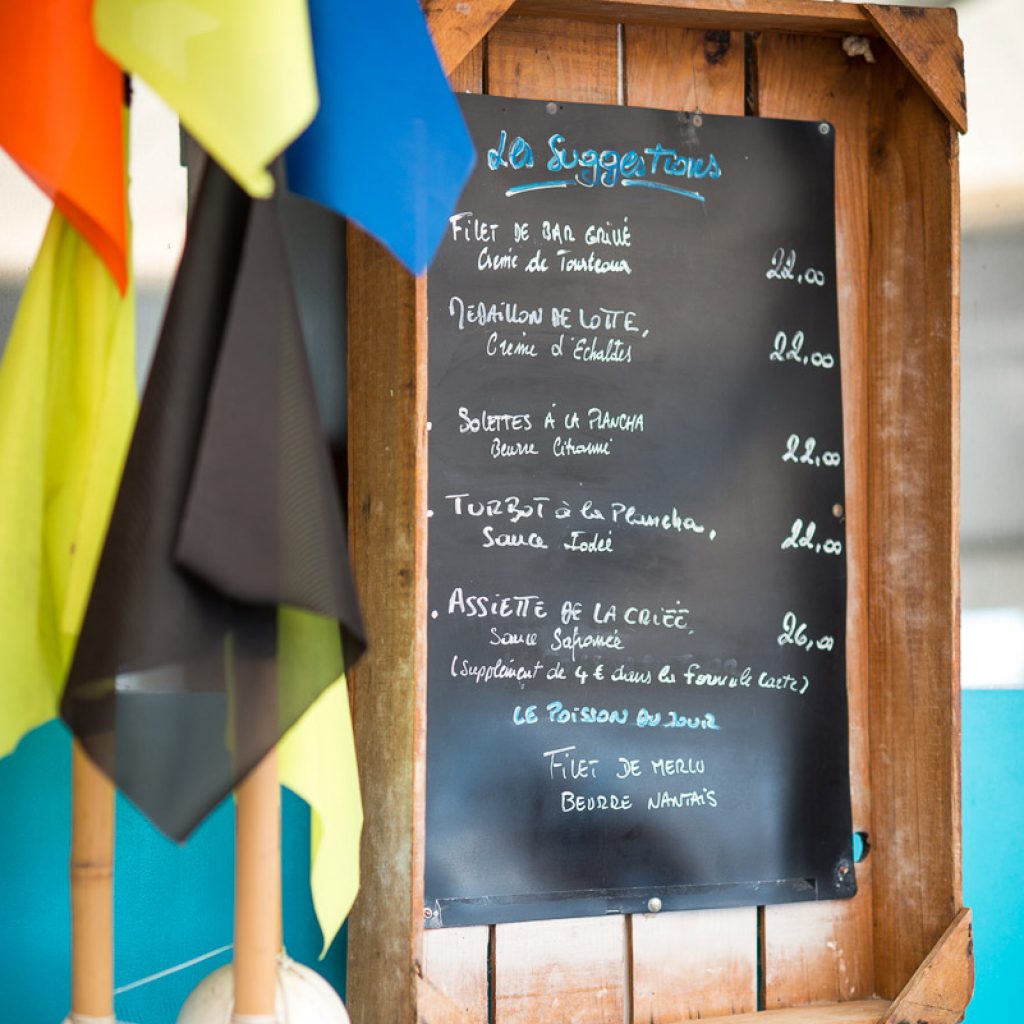 Les Suggestions
FILET DE BAR GRILLÉ
Crème de Tourteaux 22,00
MÉDAILLON DE LOTTE,
Crème d'Echalotes 22,00
SOLETTES À LA PLANCHA
Beurre Citronné 22,00
TURBOT à la Plancha,
Sauce Iodée 22,00
ASSIETTE DE LA CRIÉE,
Sauce Safranée 26,00
(Supplément de 4 € dans la Formule Carte)
LE POISSON DU JOUR
FILET DE MERLU
BEURRE NANTAIS